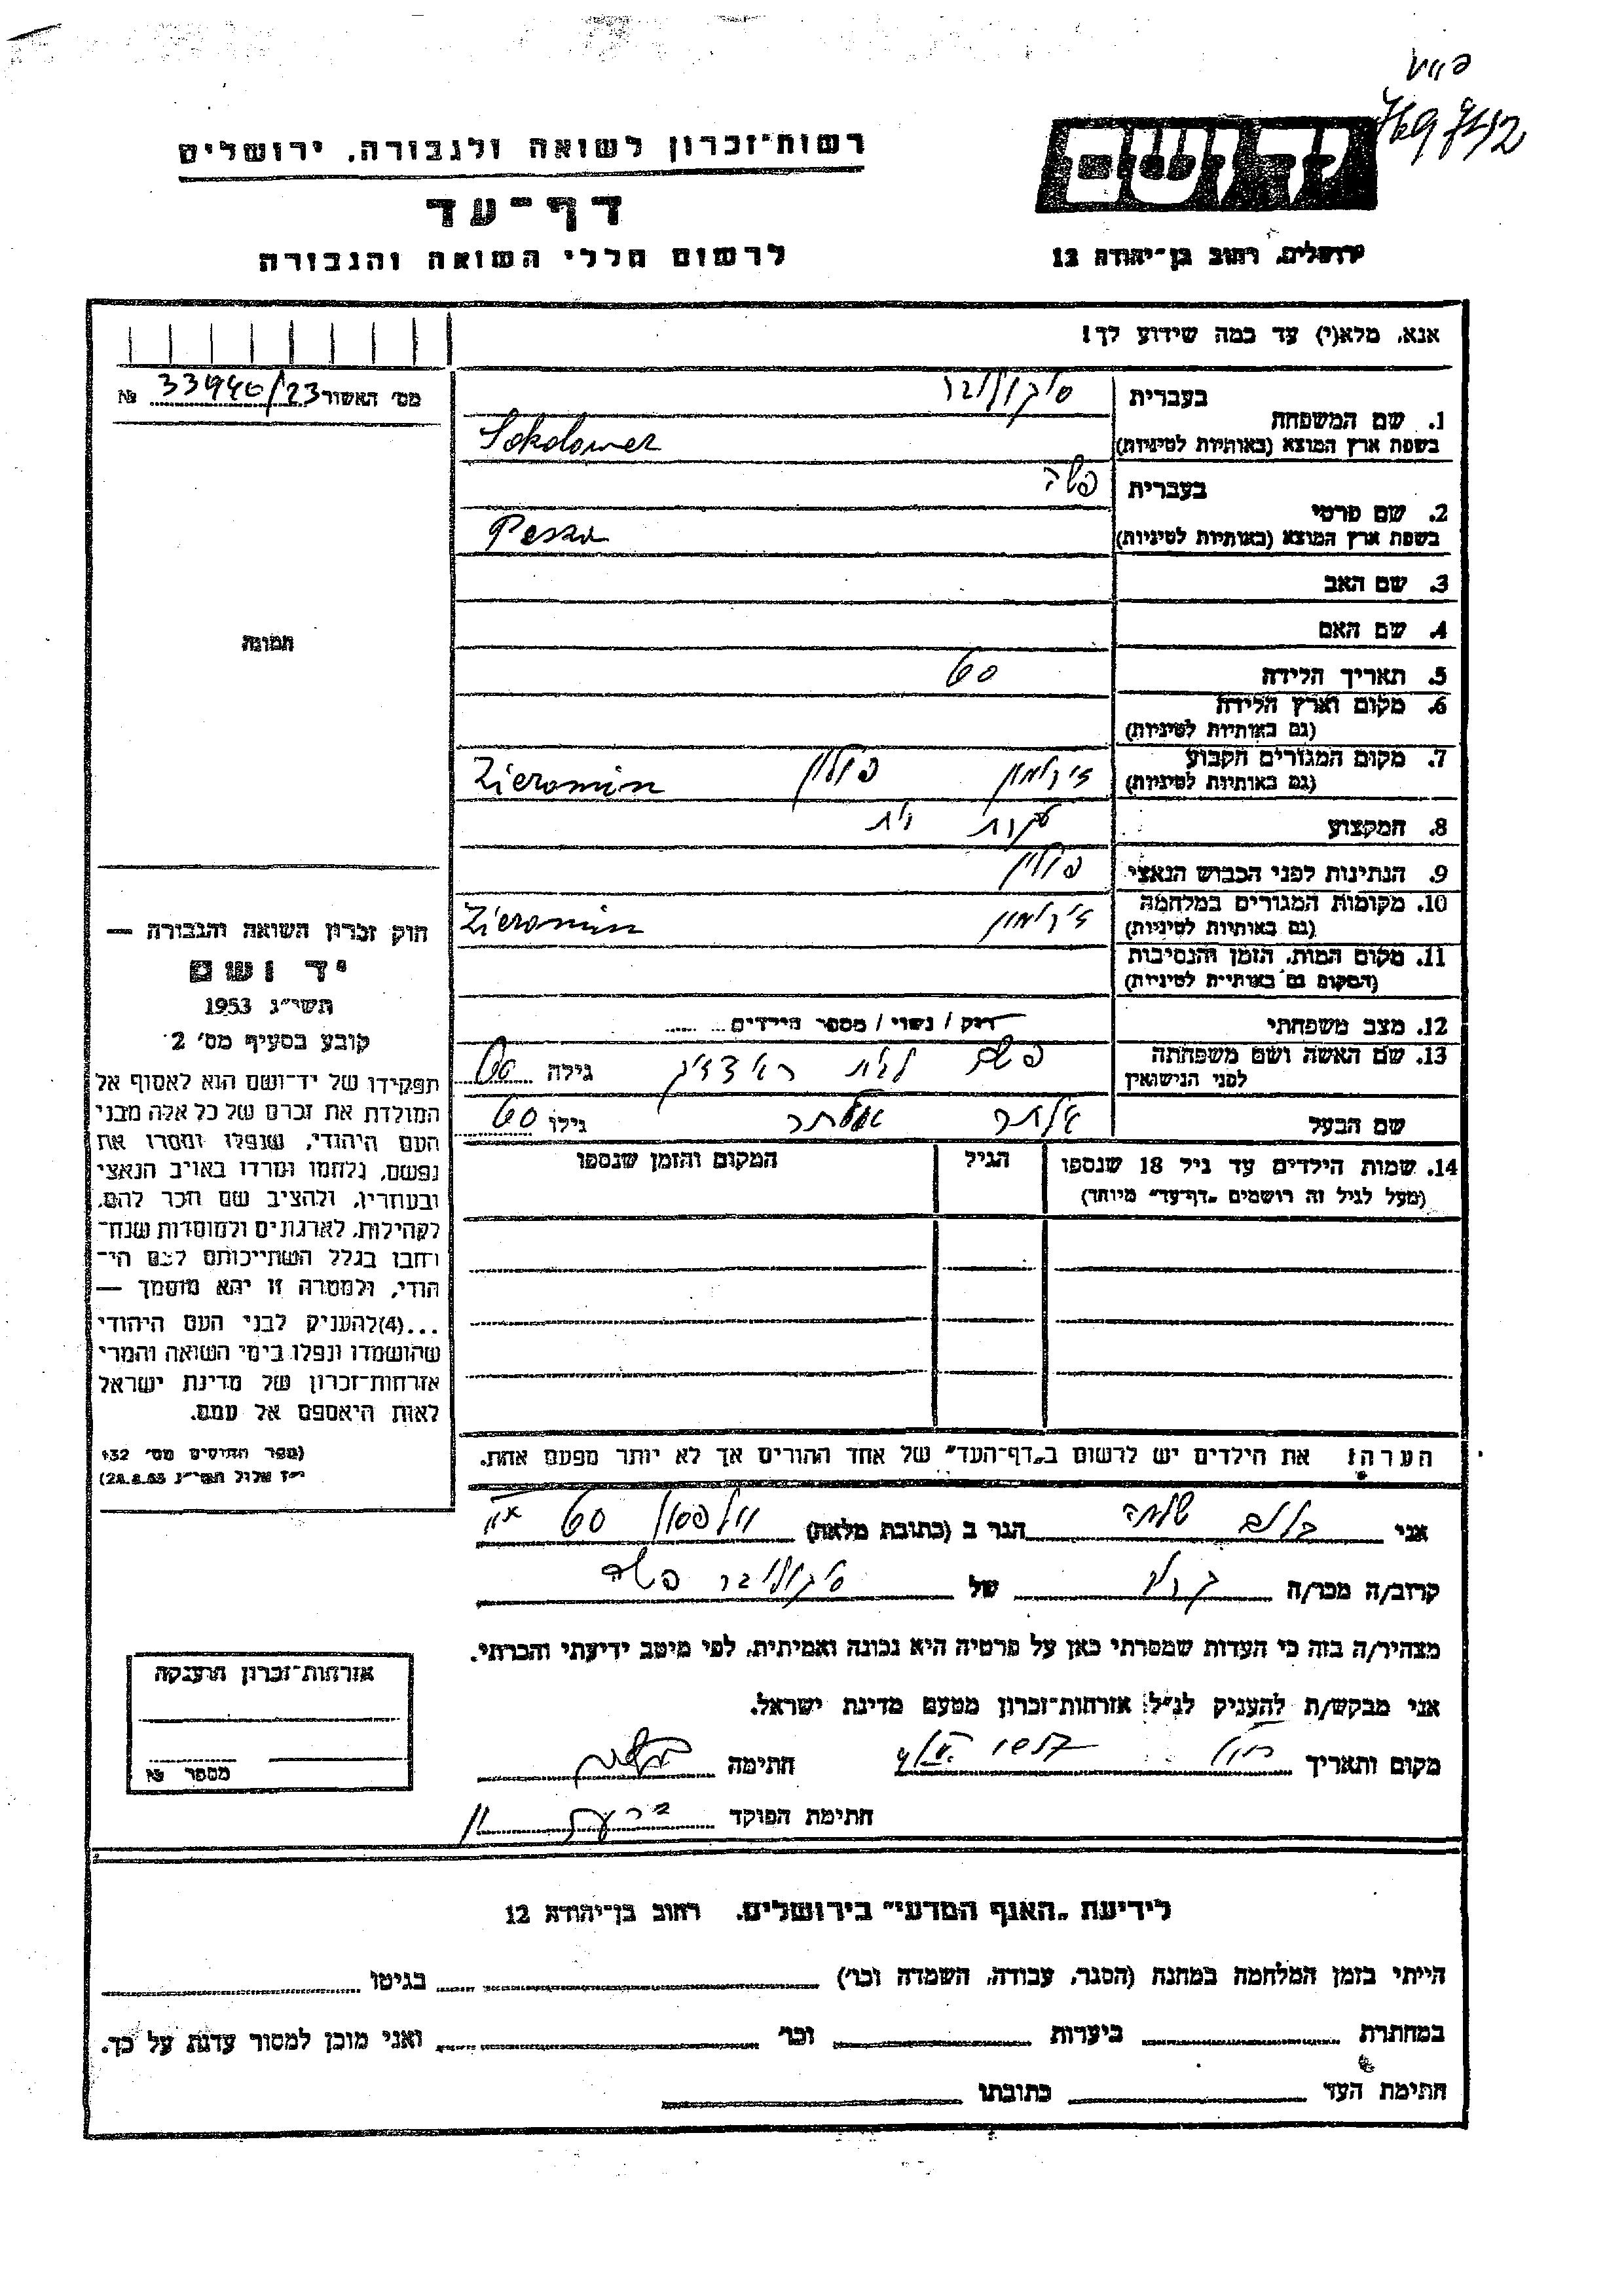 רשות־זכרון לשואה ולגבורה, ירושלים
דף־עד
לרשום חללי השואה והגבורה
יד ושם
ירושלים, רחוב בן־יהודה 12
אנא, מלא(י) עד כמה שידוע לך!
מס' האשור 33940/23 №
1. שם המשפחה
בעברית סוקולובר
בשפת ארץ המוצא (באותיות לטיניות) Sokolower
2. שם פרטי
בעברית פשה
בשפת ארץ המוצא (באותיות לטיניות) Pessa
3. שם האב
4. שם האם
5. תאריך הלידה 60
6. מקום וארץ הלידה
(גם באותיות לטיניות)
7. מקום המגורים הקבוע
(גם באותיות לטיניות) פולין Zieromin
8. המקצוע עקרת בית
9. הנתינות לפני הכבוש הנאצי פולין
10. מקומות המגורים במלחמה
(גם באותיות לטיניות) Zieromin
11. מקום המות, הזמן והנסיבות
(המקום גם באותיות לטיניות)
12. מצב משפחתי רווק / נשוי / מספר הילדים
13. שם האשה ושם משפחתה
לפני הנישואין פשה לבית גילה 60
שם הבעל אלתר גילו 60
14. שמות הילדים עד גיל 18 שנספו
(מעל לגיל זה רושמים "דף־עד" מיוחד)
הגיל
המקום והזמן שנספו
הערה: את הילדים יש לרשום ב"דף־העד" של אחד ההורים אך לא יותר מפעם אחת.
תמונה
חוק זכרון השואה והגבורה —
יד ושם
תשי"ג 1953
קובע בסעיף מס' 2
תפקידו של יד־ושם הוא לאסוף אל
המולדת את זכרם של כל אלה מבני
העם היהודי, שנפלו ומסרו את
נפשם, נלחמו ומרדו באויב הנאצי
ובעוזריו, ולהציב שם וזכר להם,
לקהילות, לארגונים ולמוסדות שנח־
רבו בגלל השתייכותם לעם הי־
הודי, ולמטרה זו יהא מוסמך —
...(4)להעניק לבני העם היהודי
שהושמדו ונפלו בימי השואה והמרי
אזרחות־זכרון של מדינת ישראל
לאות היאספם אל עמם.
(ספר החוקים מס' 132
י"ז אלול תשי"ג 28.8.53)
אני בלום שלמה הגר ב (כתובת מלאה) וולפסון 60
קרוב/ה מכר/ה קרוב של סוקולובר פשה
מצהיר/ה בזה כי העדות שמסרתי כאן על פרטיה היא נכונה ואמיתית, לפי מיטב ידיעתי והכרתי.
אני מבקש/ת להעניק לנ"ל אזרחות־זכרון מטעם מדינת ישראל.
מקום ותאריך חולון חתימה
חתימת הפוקד
אזרחות־זכרון הוענקה
מספר №
לידיעת "האגף המדעי" בירושלים, רחוב בן־יהודה 12
הייתי בזמן המלחמה במחנה (הסגר, עבודה, השמדה וכו') בגיטו
במחתרת ביערות וכו' ואני מוכן למסור עדות על כך.
חתימת העד כתובתו